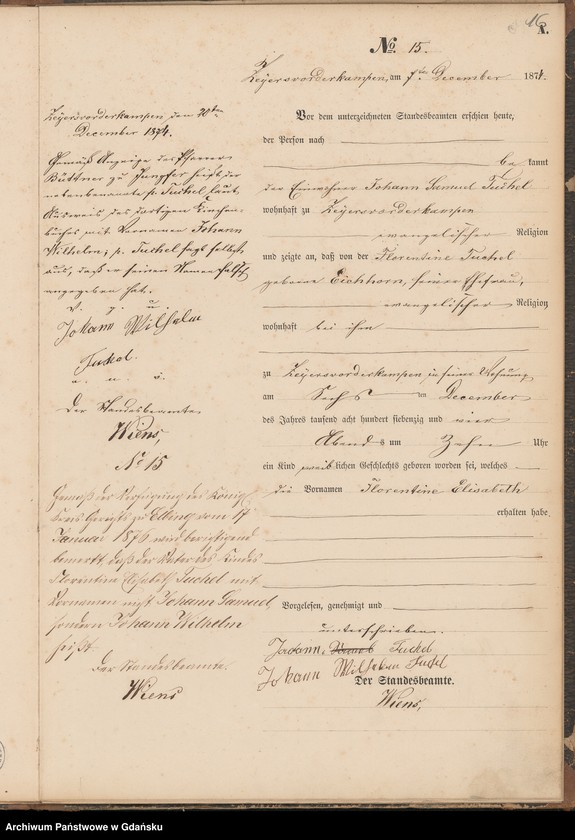 16
A.
No. 15.
Zeyersvorderkampen, am 7ten December 1874.
Vor dem unterzeichneten Standesbeamten erschien heute,
der Person nach
bekannt
der Einwohner Johann Samuel Fuchel
wohnhaft zu Zeyersvorderkampen
evangelischer Religion
und zeigte an, daß von der Florentine Fuchel
geborene Eichhorn, seiner Ehefrau,
evangelischer Religion
wohnhaft bei ihm
zu Zeyersvorderkampen in seiner Wohnung
am Sechs ten December
des Jahres tausend acht hundert siebenzig und vier
Abends um Zehn Uhr
ein Kind weiblichen Geschlechts geboren worden sei, welches
die Vornamen Florentine Elisabeth
erhalten habe
Vorgelesen, genehmigt und
unterschrieben.
Johann Fuchel
Johann Wilhelm Fuchel
Der Standesbeamte.
Wiens,
Zeyersvorderkampen den 20ten
December 1874.
Gemäß Anzeige des Pfarrers
Büttner zu Jungfer heißt der
nebenbenannte p. Fuchel laut
Ausweis des dortigen Kirchen-
buches mit Vornamen Johann
Wilhelm; p. Fuchel sagt selbst
aus, daß er seinen Namen falsch
angegeben hat.
v. g. u.
Johann Wilhelm
Fuchel.
a. u. s.
Der Standesbeamte.
Wiens,
No 15
Gemäß der Verfügung des Königl.
Kreis Gerichts zu Elbing vom 17
Januar 1876 wird berichtigend
bemerkt, daß der Vater des Kindes
Florentine Elisabeth Fuchel mit
Vornamen nicht Johann Samuel,
sondern Johann Wilhelm
heißt.
Der Standesbeamte.
Wiens
Archiwum Państwowe w Gdańsku